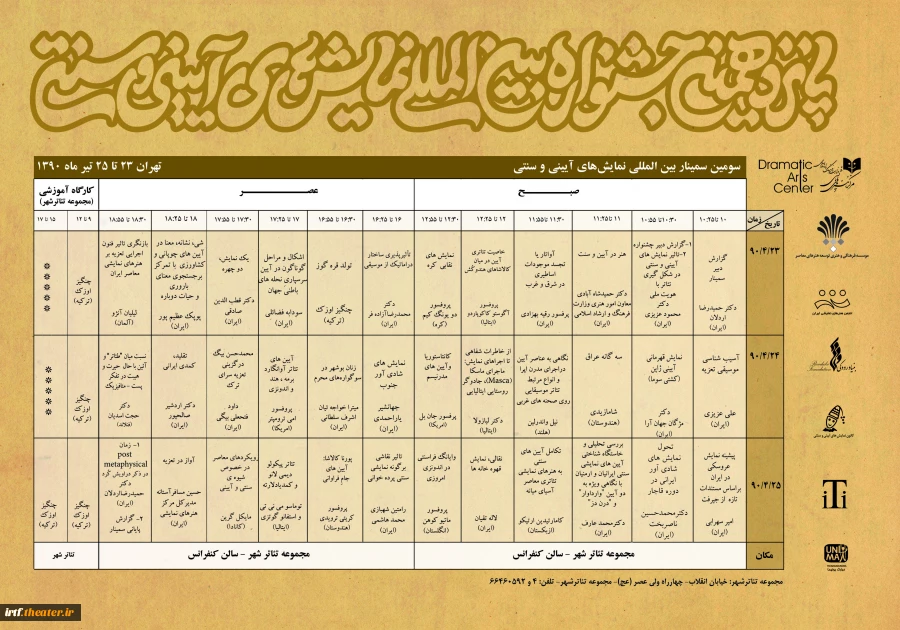 پانزدهمین جشنواره بین المللی نمایش‌های آیینی و سنتی
سومین سمینار بین المللی نمایش‌های آیینی و سنتی
تهران ۲۳ تا ۲۵ تیر ماه ۱۳۹۰
صبح
عصر
کارگاه آموزشی
(مجموعه تئاترشهر)
زمان
تاریخ
۱۰ تا ۱۰:۲۵
۱۰:۳۰ تا ۱۰:۵۵
۱۱ تا ۱۱:۲۵
۱۱:۳۰ تا ۱۱:۵۵
۱۲ تا ۱۲:۲۵
۱۲:۳۰ تا ۱۲:۵۵
۱۶ تا ۱۶:۲۵
۱۶:۳۰ تا ۱۶:۵۵
۱۷ تا ۱۷:۲۵
۱۷:۳۰ تا ۱۷:۵۵
۱۸ تا ۱۸:۲۵
۱۸:۳۰ تا ۱۸:۵۵
۹ تا ۱۲
۱۵ تا ۱۷
۹۰/۴/۲۳
گزارش
دبیر
سمینار
دکتر حمیدرضا
اردلان
(ایران)
۱-گزارش دبیر جشنواره
۲-تاثیر نمایش های
آیینی و سنتی
در شکل گیری
تئاتر با
هویت ملی
محمود عزیزی
(ایران)
هنر در آیین و سنت
دکتر حمیدشاه آبادی
معاون امور هنری وزارت
فرهنگ و ارشاد اسلامی
آواتار یا
تجسد موجودات
اساطیری
در شرق و غرب
پروفسور رقیه بهزادی
(ایران)
خاصیت تئاتری
آیین در میان
کالاشاهای هندوکش
پروفسور
آگوستو کاکوپاردو
(ایتالیا)
نمایش های
نقابی کره
پروفسور
دو یونگ کیم
(کره)
تأثیرپذیری ساختار
دراماتیک از موسیقی
دکتر
محمدرضا آزاده فر
(ایران)
تولد قره گوز
چنگیز اوزک
(ترکیه)
اشکال و مراحل
گوناگون در آیین
سرسپاری نحله های
باطنی جهان
سودابه فضائلی
(ایران)
یک نمایش،
دو چهره
دکتر قطب الدین
صادقی
(ایران)
شیء، نشانه، معنا در
آیین های چوپانی و
کشاورزی با تمرکز
برجستجوی معنای
باروری
و حیات دوباره
پوپک عظیم پور
(ایران)
بازنگری تاثیر فنون
اجرایی تعزیه بر
هنرهای نمایشی
معاصر ایران
تیلیان آنژو
(آلمان)
چنگیز
اوزک
(ترکیه)
۹۰/۴/۲۴
آسیب شناسی
موسیقی تعزیه
علی عزیزی
(ایران)
نمایش قهرمانی
آیینی ژاپن
(کشتی سومو)
دکتر
مژگان جهان آرا
(ایران)
سه گانه عراق
شامازیدی
(هندوستان)
نگاهی به عناصر آیین
دراجرای مدرن اپرا
و انواع مرتبط
تئاتر موسیقایی
روی صحنه های غربی
نیل واندرلین
(هلند)
از خاطرات شفاهی
تا اجراهای نمایش:
ماجرای ماسکا
(Masca)، جادوگر
روستایی ایتالیایی
دکتر لیازولا
(ایتالیا)
کانتاستوریا
وآیین های
مدرنیسم
پروفسور جان بل
(آمریکا)
نمایش های
شادی آور
جنوب
جهانشیر
یاراحمدی
(ایران)
زنان بوشهر در
سوگواره‌های محرم
میترا خواجه تیان
اشرف سلطانی
(ایران)
آیین های
تئاتر آوانگارد
برمه ، هند
و اندونزی
پروفسور
امی ترومپتر
(آمریکا)
محمدحسن بیگ
درگزینی
تعزیه سرای
ترک
داود
فتحعلی بیگی
(ایران)
تقلید،
کمدی ایرانی
دکتر اردشیر
صالحپور
(ایران)
نسبت میان "طئاتر" و
آئین با حال حیرت و
هیبت در تفکر
پست - متافیزیک
دکتر
حجت اسدیان
(فنلاند)
چنگیز
اوزک
(ترکیه)
۹۰/۴/۲۵
پیشینه نمایش
عروسکی
در ایران
براساس مستندات
تازه از جیرفت
امیر سهرابی
(ایران)
تحول
نمایش های
شادی آور
ایرانی در
دوره قاجار
دکتر محمدحسین
ناصربخت
(ایران)
بررسی تحلیلی و
خاستگاه شناختی
آیین های نمایشی
سنتی ایرانیان و ارمنیان
با نگاهی ویژه به
دو آیین "واردآوار"
و "مزن در"
دکترمحمد عارف
(ایران)
تکامل آیین های
سنتی
به هنرهای نمایشی
تئاتری معاصر
آسیای میانه
کامارلیدین آرتیکو
(ازبکستان)
نقالی، نمایش
قهوه خانه ها
لاله تقیان
(ایران)
وایانگ فراستتی
در اندونزی
امروزی
پروفسور
ماتیو کوهن
(انگلستان)
تاثیر نقاشی
برگونه نمایشی
سنتی پرده خوانی
رامتین شهبازی
محمد هاشمی
(ایران)
پورنا کالاشا:
آیین های
جام فراوانی
پروفسور
کریتی تریودی
(هندوستان)
تئاتر پیکولو
دیمی لانو
و کمدیادلارته
توماسو می نی تی
و استفانو گوئنزی
(ایتالیا)
رویکردهای معاصر
در خصوص
شیوه ی
سنتی و آیینی
مایکل گرین
(کانادا)
آواز در تعزیه
حسین مسافرآستانه
مدیرکل مرکز
هنرهای نمایشی
(ایران)
۱- زمان
post
metaphysical
در ذکر دراویش گرد
دکتر
حمیدرضااردلان
(ایران)
۲- گزارش
پایانی سمینار
چنگیز
اوزک
(ترکیه)
چنگیز
اوزک
(ترکیه)
مکان
مجموعه تئاتر شهر - سالن کنفرانس
مجموعه تئاتر شهر - سالن کنفرانس
تئاتر شهر
مجموعه تئاترشهر: خیابان انقلاب- چهارراه ولی عصر (عج)- مجموعه تئاترشهر- تلفن: ۴ و ۶۶۴۶۰۵۹۲
Dramatic
Arts
Center
موسسه فرهنگی و هنری توسعه هنرهای معاصر
بنیاد رودکی
کانون نمایش های آیینی و سنتی
iTi
UNIMA
irtf.theater.ir